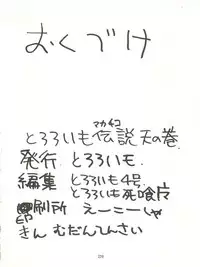 おくづけ
マカチヨ
とろろいも伝説 天の巻
発行 とろろいも.
編集 とろろいも4号.
とろろいも死喰虎
印刷所 えーこーしゃ
きん むだんてんさい